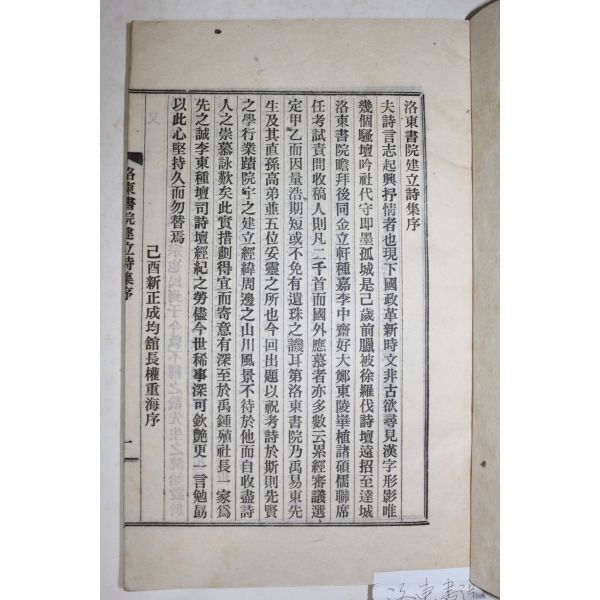 洛東書院建立詩集序
夫詩言志起興抒情者也現下國政革新時文非古欲尋見漢字形影唯
幾個騷壇吟社代守即墨孤城是己歲前臘被徐羅伐詩壇遠招至達城
洛東書院瞻拜後同金立軒種嘉李中齋好大鄭東陵畢植諸碩儒聯席
任考試責問收稿人則凡二千首而國外應募者亦多數云累經審議選
定甲乙而因量浩期短或不免有遺珠之譏耳第洛東書院乃禹易東先
生及其直孫高弟並五位妥靈之所也今回出題以祝考詩於斯則先賢
之學行業蹟院宇之建立經緯周邊之山川風景不待於他而自收盡詩
人之崇慕詠歎矣此實措劃得宜而寄意有深至於禹鍾殖社長一家爲
先之誠李東種壇司詩壇經紀之勞儘今世稀事深可欽艷更一言勉勗
以此心堅持久而勿替焉
己酉新正成均館長權重海序
洛東書院建立詩集序
一
洛東書